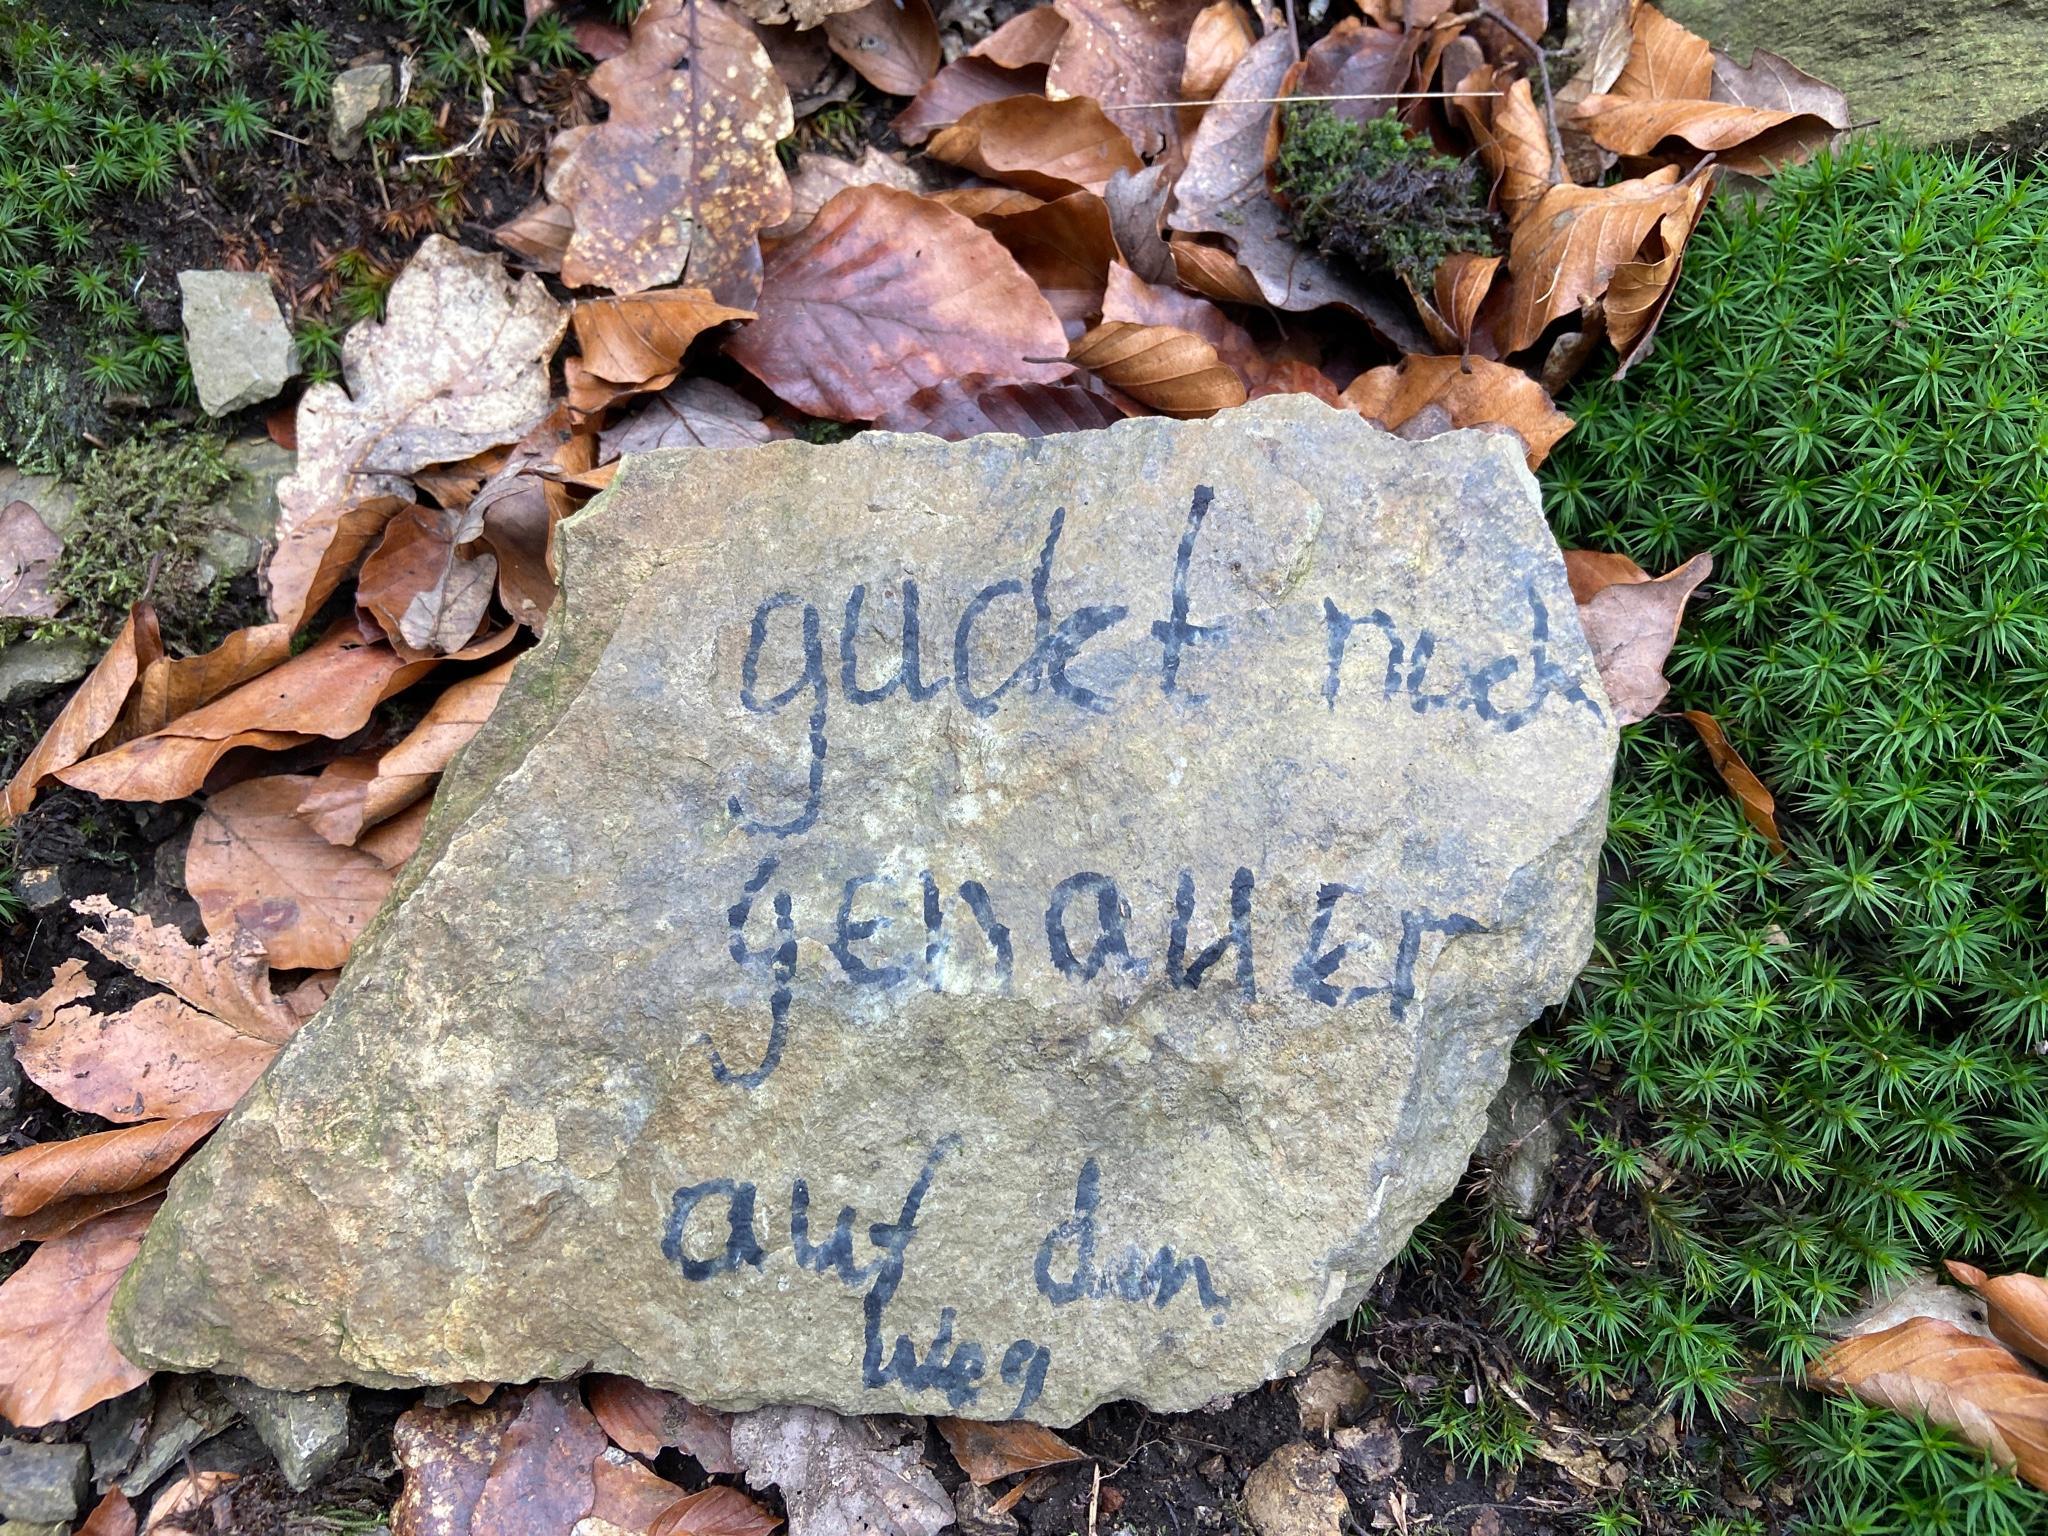 guckt noch
genauer
auf den
Weg